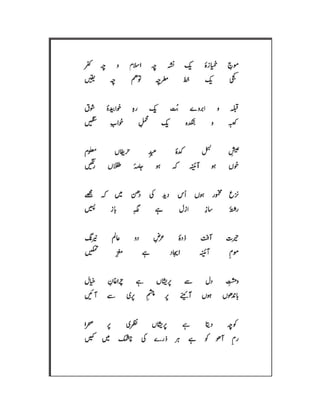 موجِ خمیازۂ یک نشہ چہ اسلام و چہ کفر
کجیِ یک خطِ مسطر چہ توہم چہ یقیں
قبلہ و ابروے بُت یک رہِ خوابیدۂ شوق
کعبہ و بتکدہ یک محملِ خوابِ سنگیں
عیشِ بسمل کدۂ عیدِ حریفاں معلوم
خوں ہو آئینہ کہ ہو جامۂ طفلاں رنگیں
نزع مخمور ہوں اُس دید کی دُھن میں کہ مجھے
رشتۂ سازِ ازل ہے نگہِ باز پسیں
حیرت آفت زدۂ عرضِ دو عالم نیرنگ
مومِ آئینۂ ایجاد ہے مغزِ تمکیں
وحشتِ دل سے پریشاں ہے چراغانِ خیال
باندھوں ہوں آئینے پر چشمِ پری سے آئیں
کوچہ دیتا ہے پریشاں نظری پر صحرا
رمِ آہو کو ہے ہر ذرے کی چشمک میں کمیں